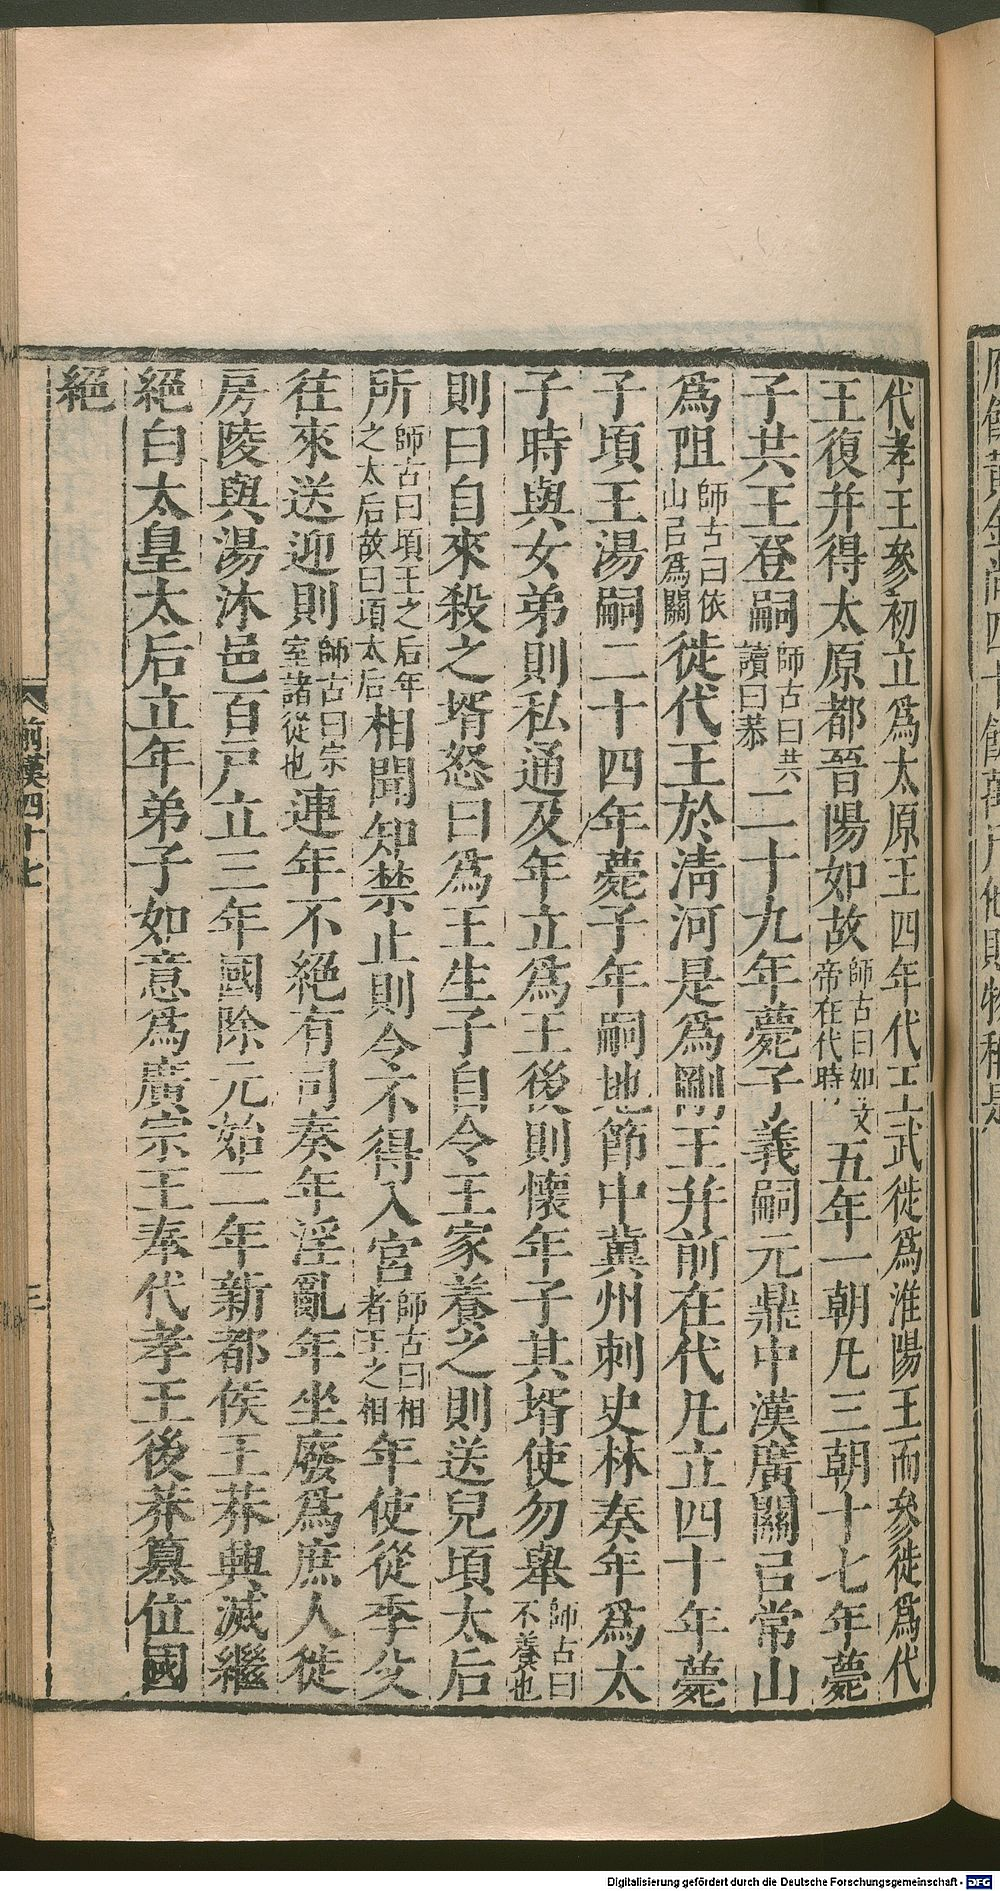 代孝王參初立爲太原王四年代王武徙爲淮陽王而參徙爲代
王復并得太原都晉陽如故師古曰如文帝在代時五年一朝凡三朝十七年薨
子共王登嗣師古曰共讀曰恭二十九年薨子義嗣元鼎中漢廣關㠯常山
爲阻師古曰依山㠯爲關徙代王於淸河是爲剛王幷前在代凡立四十年薨
子頃王湯嗣二十四年薨子年嗣地節中冀州刺史林奏年爲太
子時與女弟則私通及年立爲王後則懷年子其壻使勿舉師古曰不養也
則曰自來殺之壻怒曰爲王生子自令王家養之則送兒頃太后
所師古曰頃王之后年之太后故曰頃太后相聞知禁止則令不得入宮師古曰相者王之相年使從季父
往來送迎則師古曰宗室諸從也連年不絕有司奏年淫亂年坐廢爲庶人徙
房陵與湯沐邑百戶立三年國除元始二年新都侯王莽興滅繼
絕白太皇太后立年弟子如意爲廣宗王奉代孝王後莽篡位國
絕
前漢四十七
三
Digitalisierung gefördert durch die Deutsche Forschungsgemeinschaft - DFG